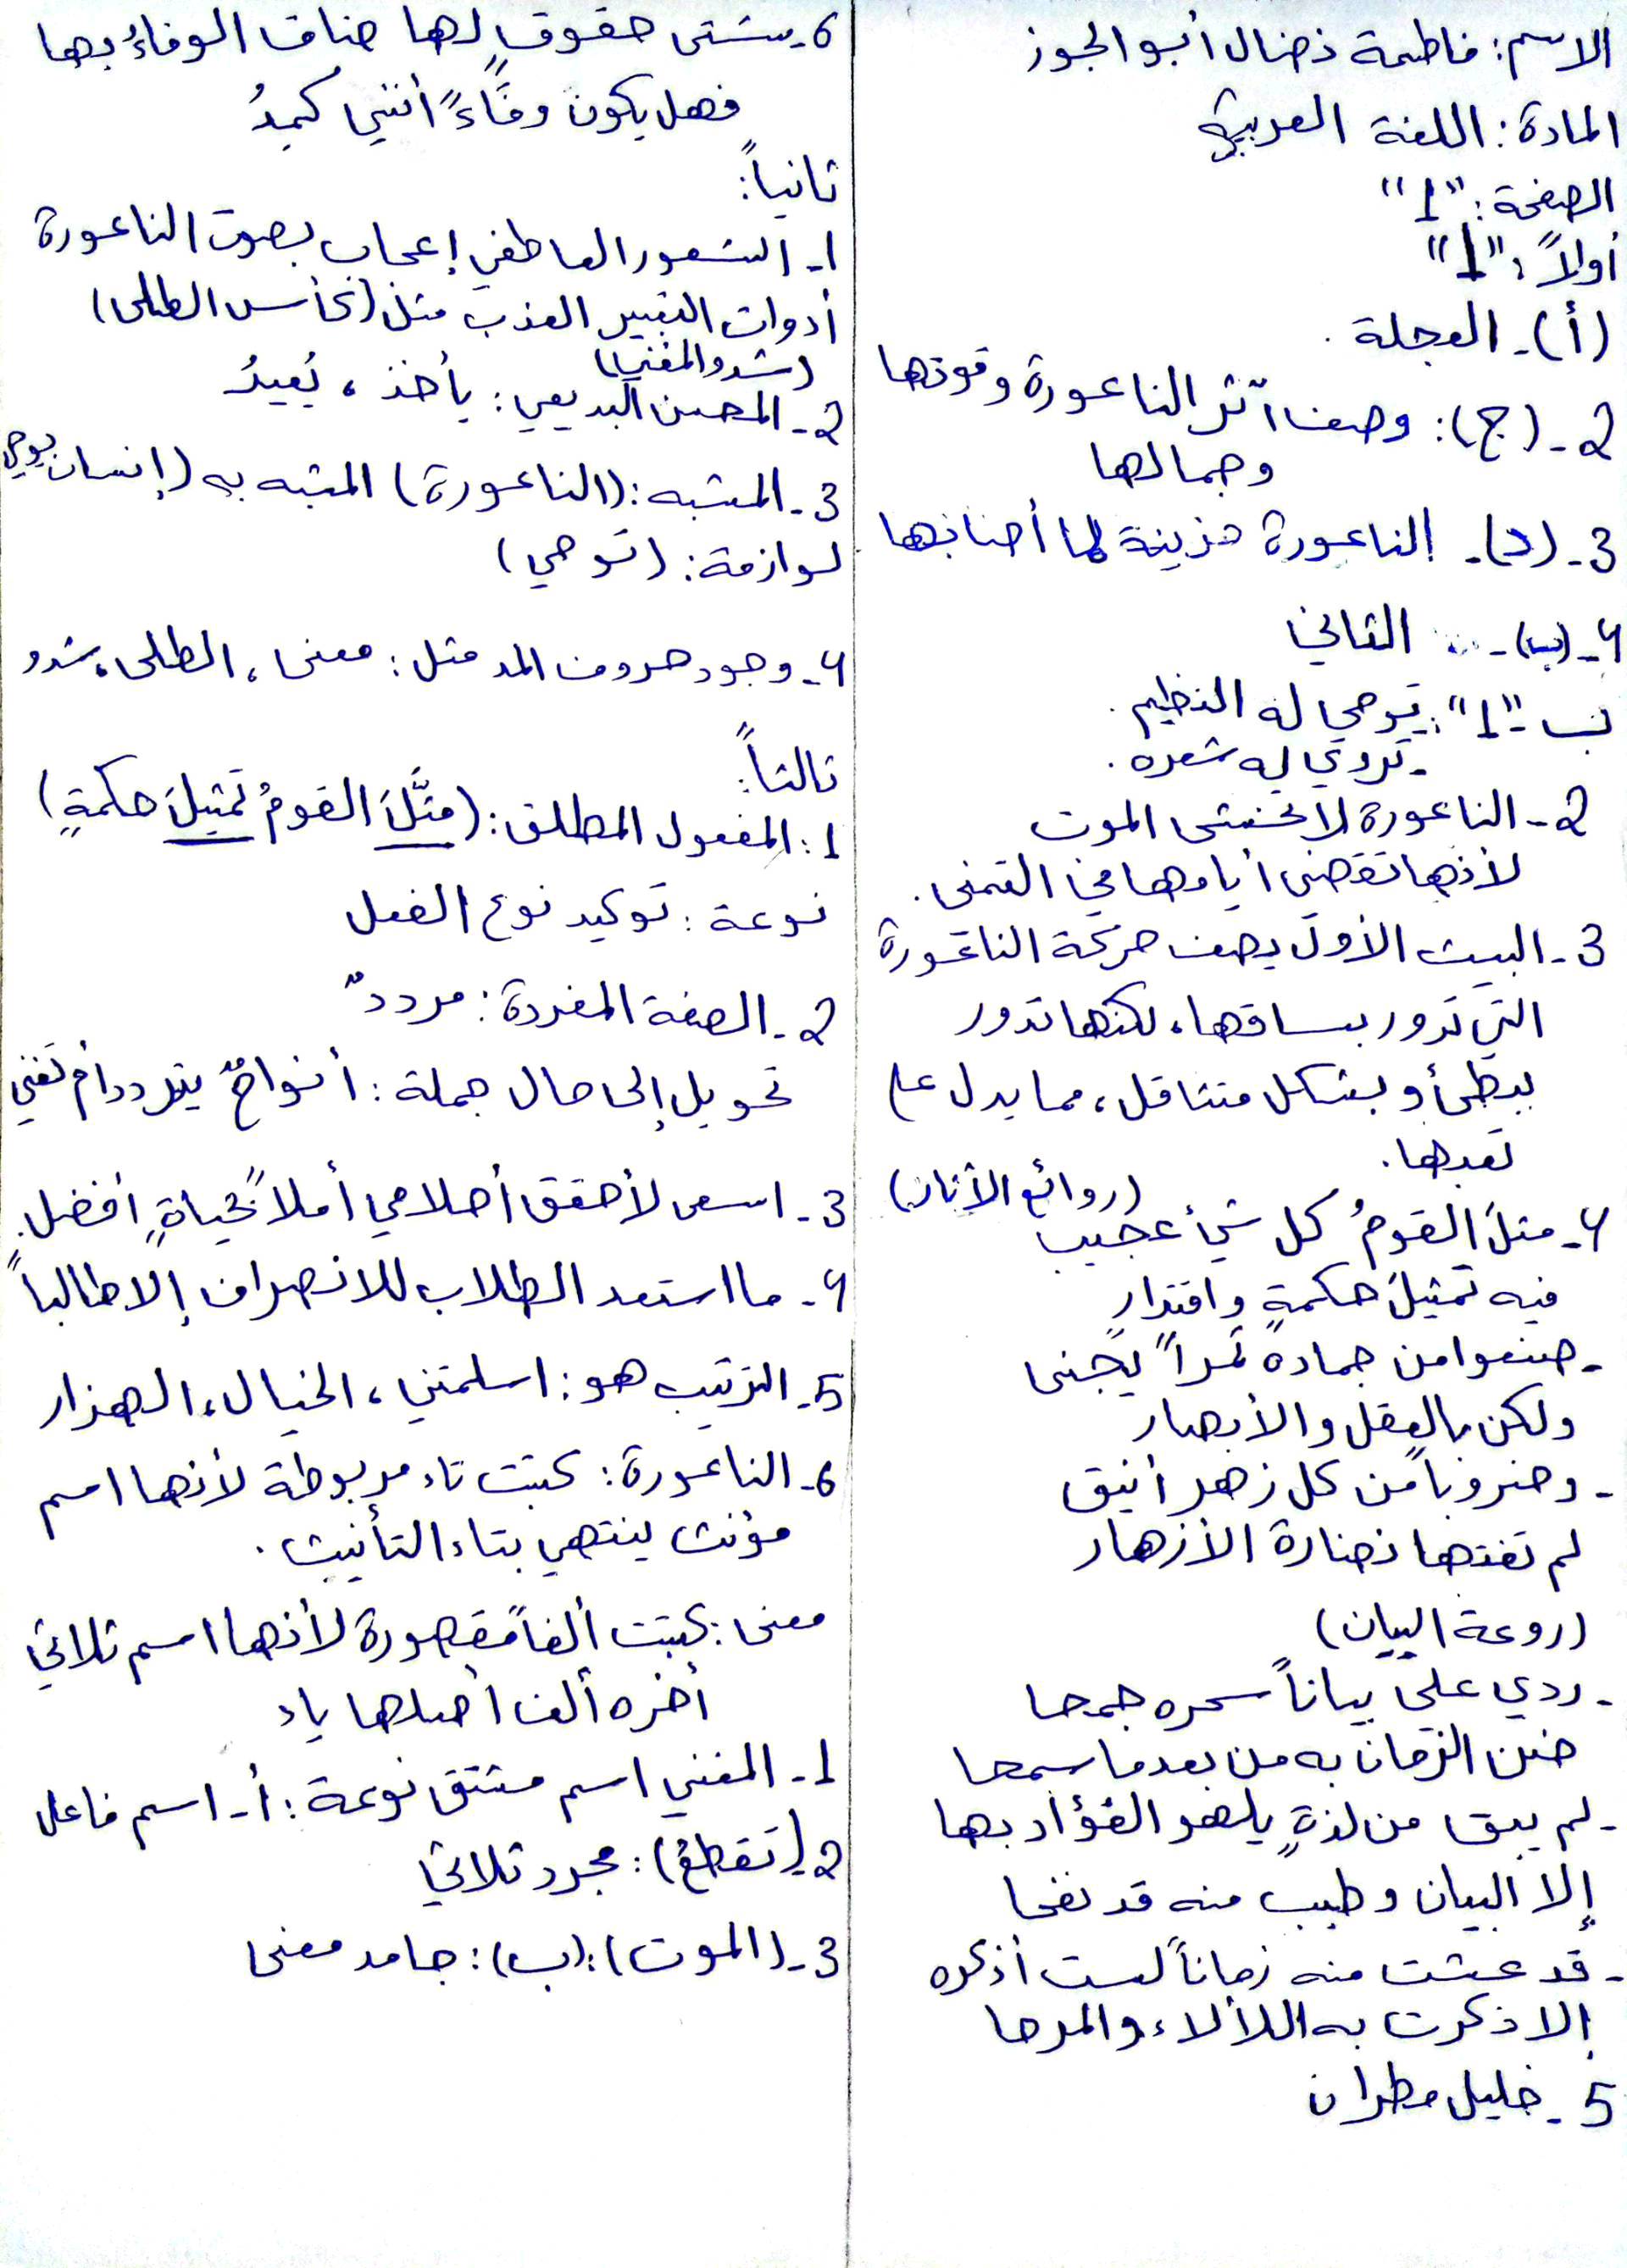 الاسم: فاطمة نضال أبو الجوز
المادة: اللغة العربية
الصفحة: "1"
أولاً: "1"
(أ)ـ العجلة.
2ـ (ج): وصف أثر الناعورة وقوتها
وجمالها
3ـ (د)ـ الناعورة حزينة لما أصابها
4ـ (ب)ـ الثاني
ب ـ "1": توحي له النظيم.
ـ تروي له شعره.
2ـ الناعورة لا تخشى الموت
لأنها تقضي أيامها في التمني.
3ـ البيت الأول يصف حركة الناعورة
التي تدور بساقها، لكنها تدور
ببطئ وبشكل متثاقل، مما يدل على
تعبها.
4ـ مثلَ القومُ كل شيء عجيب (روائع الأثار)
فيه تمثيلَ حكمةٍ واقتدارِ
ـ صنعوا من جماده ثمراً يجنى
ولكن بالعقل والأبصار
ـ وضروباً من كل زهر أنيق
لم تفتها نضارة الأزهار
(روعة البيان)
ـ ردي علي بياناً سحره جمحا
ضن الزمان به من بعدما سمحا
ـ لم يبق من لذةٍ يلهو الفؤاد بها
إلا البيان وطيب منه قد نفحا
ـ قد عشت منه زماناً لست أذكره
إلا ذكرت به اللألاء والمرحا
5ـ خليل مطران
6ـ شتى حقوقٍ لها ضاق الوفاءُ بها
فهل يكون وفَّاءً أنني كمِدُ
ثانياً:
1ـ الشعور العاطفي إعجاب بصوت الناعورة
أدوات التعبير العذب مثل (كأس الطلى)
(شدو المغني)
2ـ المحسن البديعي: يأخذ، يُعيدُ
3ـ المشبه: (الناعورة) المشبه به (إنسان يوحي
لوازمة: (توحي)
4ـ وجود حروف المد مثل: معنى، الطلى، شدو
ثالثاً:
1: المفعول المطلق: (مثَّلَ القومُ تمثيلَ حكمةٍ)
نوعة: توكيد نوع الفعل
2ـ الصفة المفردة: مرددٌ
تحويل إلى حال جملة: أنواحٌ يتردد أم تغني
3ـ اسعى لأحقق أحلامي أملاً بحياةٍ أفضل.
4ـ ما استعد الطلاب للانصراف إلا طالباً
5ـ الترتيب هو: اسلمتني، الخيال، الهزار
6ـ الناعورة: كتبت تاء مربوطة لأنها اسم
مؤنث ينتهي بتاء التأنيث.
معنى: كتبت ألفاً مقصورة لأنها اسم ثلاثي
أخره ألف أصلها ياء
1ـ المغني اسم مشتق نوعة: أ ـ اسم فاعل
2ـ (تقطعُ): مجرد ثلاثي
3ـ (الموت): (ب): جامد معنى